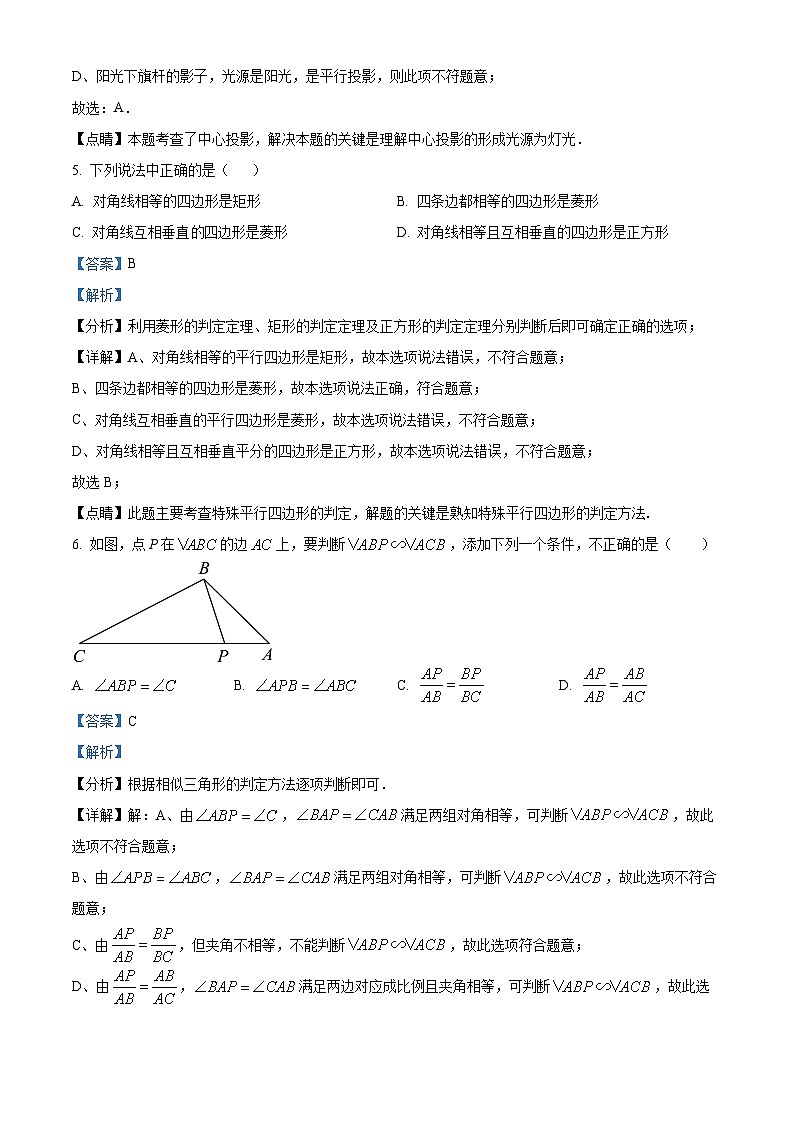 D、阳光下旗杆的影子，光源是阳光，是平行投影，则此项不符题意；
故选：A．
【点睛】本题考查了中心投影，解决本题的关键是理解中心投影的形成光源为灯光．
5. 下列说法中正确的是（　　）
A. 对角线相等的四边形是矩形　　B. 四条边都相等的四边形是菱形
C. 对角线互相垂直的四边形是菱形　　D. 对角线相等且互相垂直的四边形是正方形
【答案】B
【解析】
【分析】利用菱形的判定定理、矩形的判定定理及正方形的判定定理分别判断后即可确定正确的选项；
【详解】A、对角线相等的平行四边形是矩形，故本选项说法错误，不符合题意；
B、四条边都相等的四边形是菱形，故本选项说法正确，符合题意；
C、对角线互相垂直的平行四边形是菱形，故本选项说法错误，不符合题意；
D、对角线相等且互相垂直平分的四边形是正方形，故本选项说法错误，不符合题意；
故选 B；
【点睛】此题主要考查特殊平行四边形的判定，解题的关键是熟知特殊平行四边形的判定方法．
6. 如图，点 P 在 VABC 的边 AC 上，要判断 VABP∽VACB ，添加下列一个条件，不正确的是（　　）
B
C P A
A. ∠ABP = ∠C　　B. ∠APB = ∠ABC　　C. AP/AB = BP/BC　　D. AP/AB = AB/AC
【答案】C
【解析】
【分析】根据相似三角形的判定方法逐项判断即可．
【详解】解：A、由 ∠ABP = ∠C ，∠BAP = ∠CAB 满足两组对角相等，可判断 VABP∽VACB ，故此
选项不符合题意；
B、由 ∠APB = ∠ABC ，∠BAP = ∠CAB 满足两组对角相等，可判断 VABP∽VACB ，故此选项不符合
题意；
C、由 AP/AB = BP/BC ，但夹角不相等，不能判断 VABP∽VACB ，故此选项符合题意；
D、由 AP/AB = AB/AC ，∠BAP = ∠CAB 满足两边对应成比例且夹角相等，可判断 VABP∽VACB ，故此选